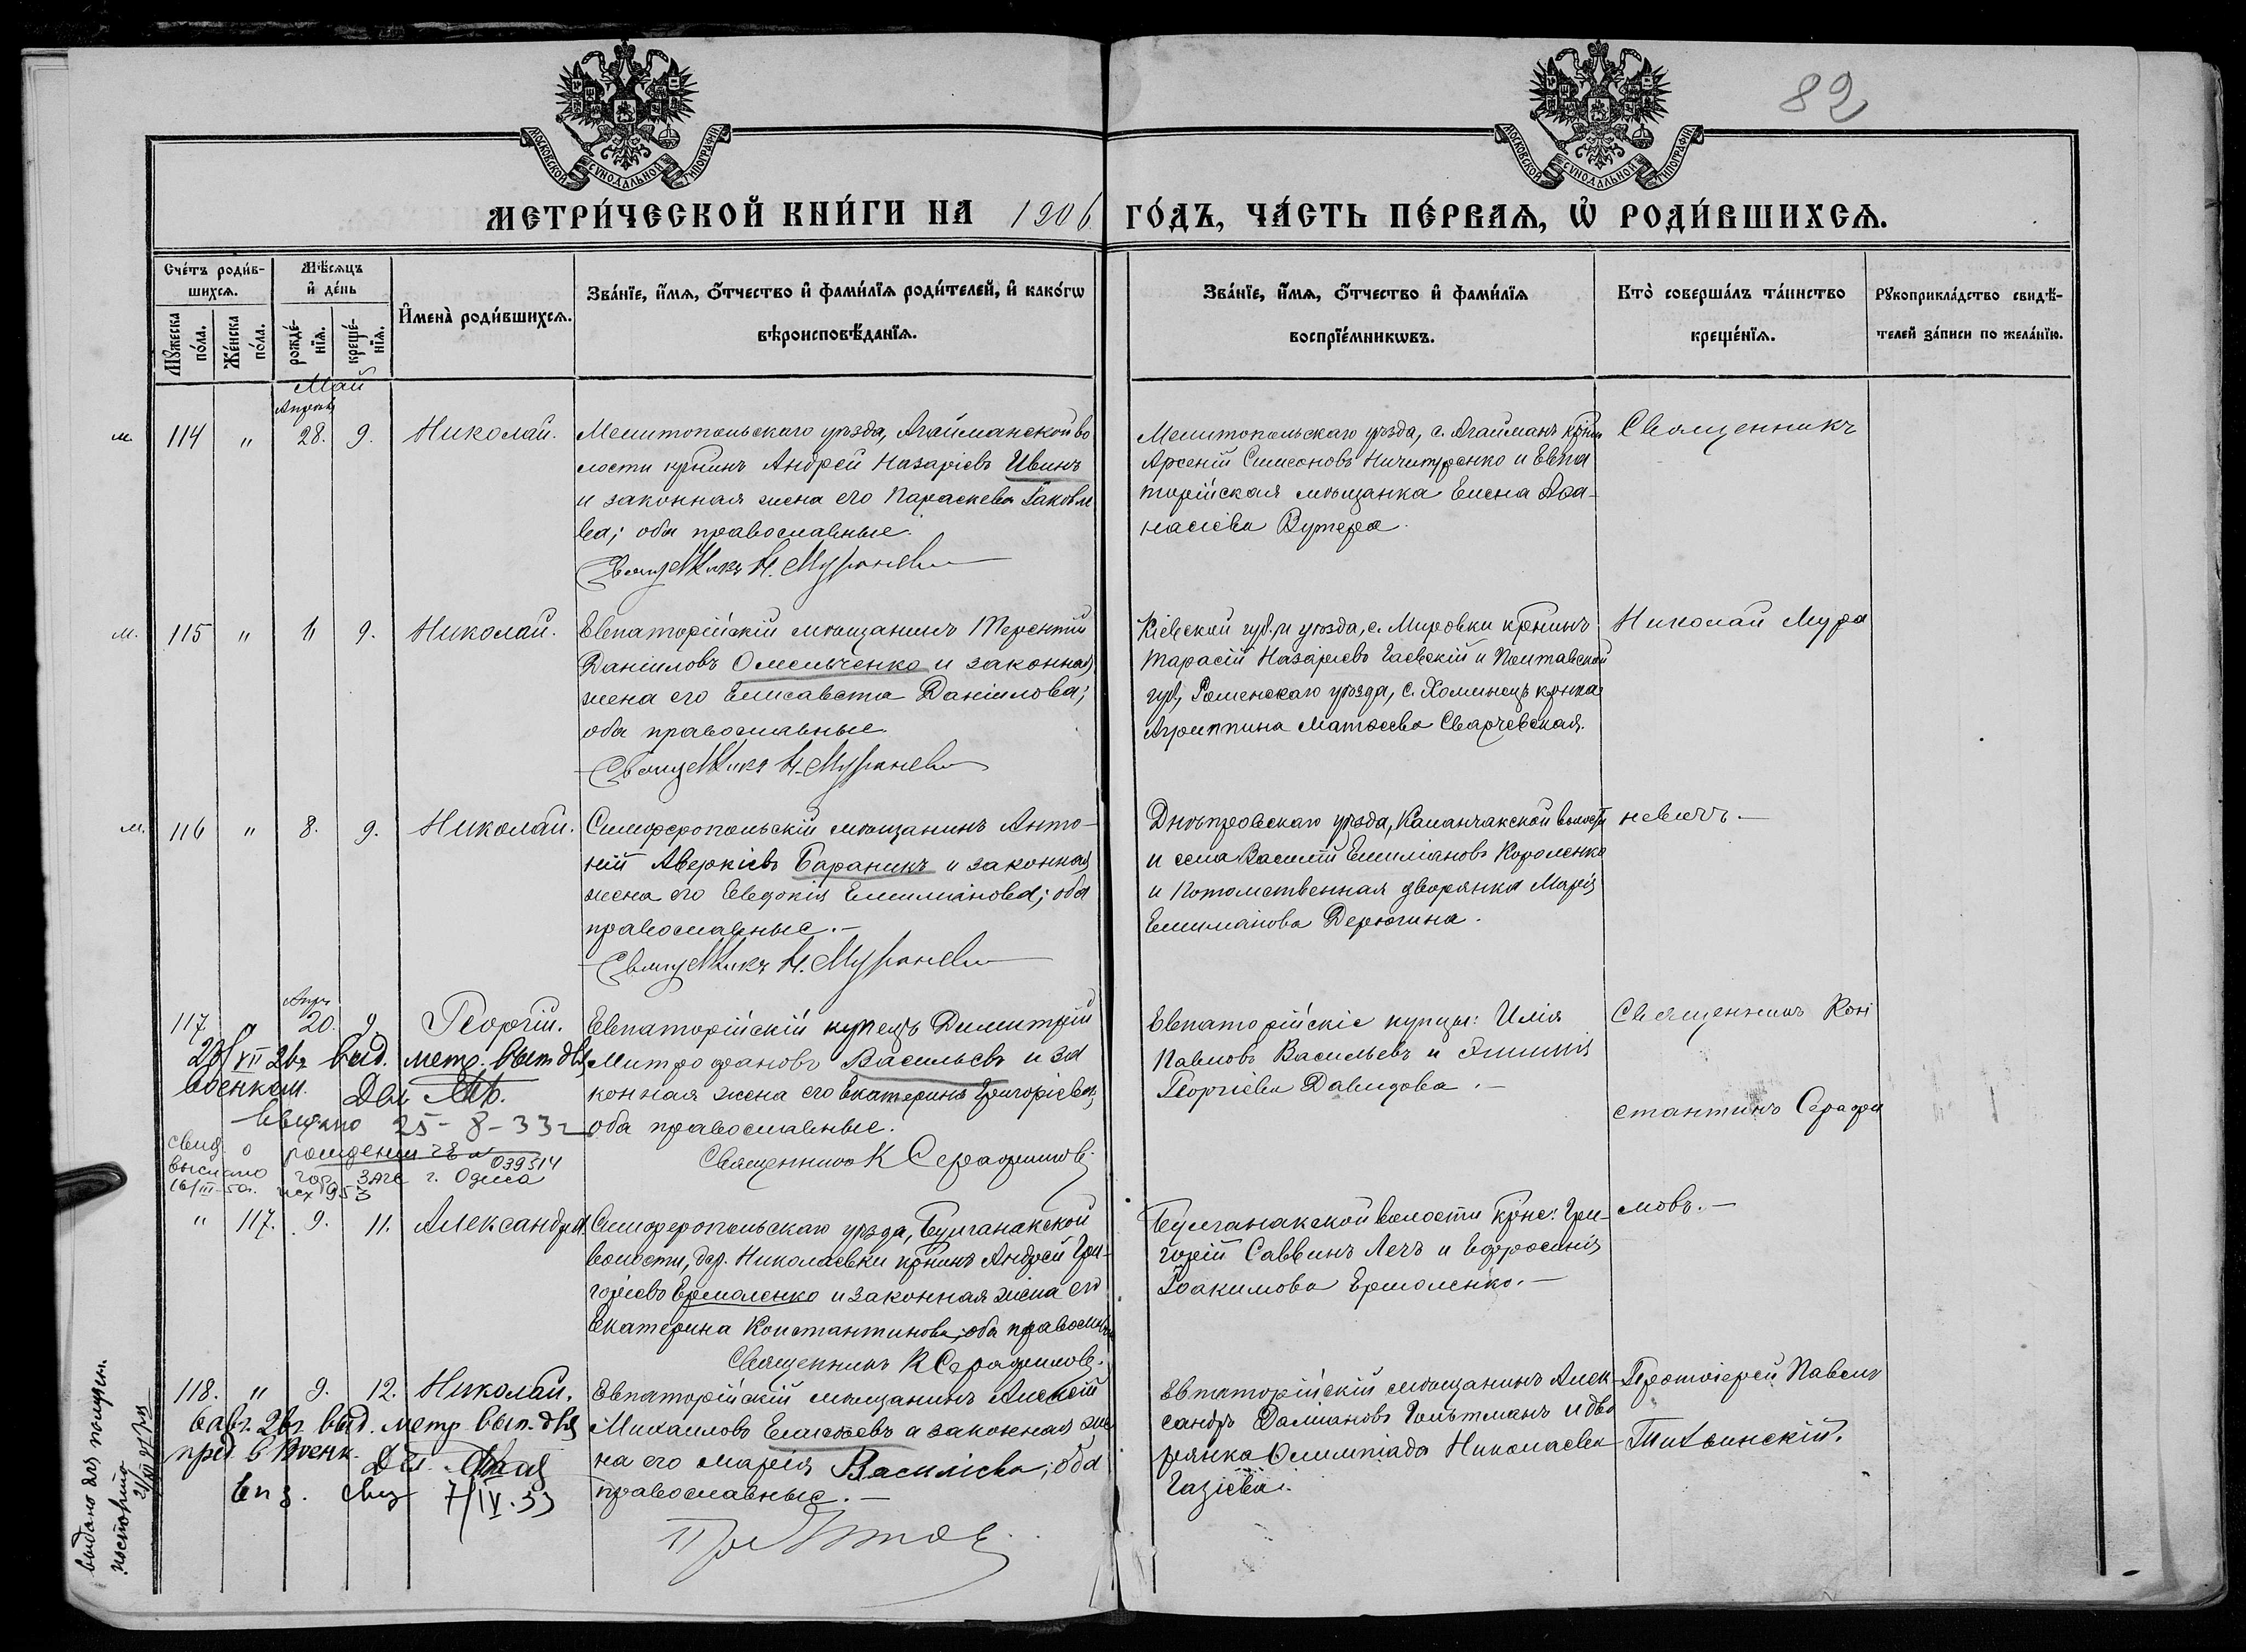 82
МОСКОВСКОЙ СѴНОДАЛЬНОЙ ТИПОГРАФІИ
МОСКОВСКОЙ СѴНОДАЛЬНОЙ ТИПОГРАФІИ
МЕТРИ́ЧЕСКОЙ КНИ́ГИ НА 1906 ГО́ДЪ, ЧА́СТЬ ПЕ́РВАѦ, Ѡ҆ РОДИ́ВШИХСѦ.
Сче́тъ роди́в-
шихсѧ.
Мꙋ́жеска по́ла.
Же́нска по́ла.
Мѣ́сѧцъ
и҆ де́нь
рожде́-
нїѧ.
креще́-
нїѧ.
И҆мена̀ роди́вшихсѧ.
Зва́нїе, и҆́мѧ, ѻ҆́тчество и҆ фами́лїѧ роди́телей, и҆ како́гѡ
вѣроисповѣ́данїѧ.
Зва́нїе, и҆́мѧ, ѻ҆́тчество и҆ фами́лїѧ
воспрїе́мникѡвъ.
Кто̀ соверша́лъ та́инство
креще́нїѧ.
Рꙋкоприкла́дство свидѣ́-
телей за́писи по жела́нїю.
Май
Апрель
м. 114 " 28. 9. Николай.
Мелитопольскаго уѣзда, Агайманской во
лости крнинъ Андрей Назаріевъ Ивинъ
и законная жена его Параскева Іаковле
ва; оба православные.
Священникъ Н. Мураневи
Мелитопольскаго уѣзда, с. Агайманъ крнин
Арсеній Симеоновъ Ничитренко и Евпа
торійская мѣщанка Елена Аѳа-
насіева Вутера.
Священникъ
м. 115 " 1 9. Николай.
Евпаторійскій мѣщанинъ Терентій
Даніиловъ Омельченко и законная
жена его Елисавета Даніилова;
оба православные.
Священникъ Н. Мураневи
Кіевской губ. и уѣзда, с. Мировки крнинъ
Тарасій Назаріевъ Гаевскій и Полтавской
губ, Роменскаго уѣзда, с. Хоминецъ крнка
Агриппина Матѳеева Сварчевская.
Николай Мура
м. 116 " 8. 9. Николай.
Симферопольскій мѣщанинъ Анто-
ній Аверкіевъ Бараникъ и законная
жена его Евдокія Емиліанова; оба
православные.-
Священникъ Н. Мураневи
Днѣпровскаго уѣзда, Каланчакской волости
и села Василій Емиліановъ Короленко
и Потомственная дворянка Марія
Емиліанова Дерюгина.
невичъ.-
Апр.
117 " 20. 9. Георгій.
Евпаторійскій купецъ Димитрій
Митрофановъ Васильевъ и за
конная жена его Екатерина Григоріева
оба православные.
Священникъ К Серафимовъ.
Евпаторійскіе купцы: Илія
Павловъ Васильевъ и
Георгіева Давидова.-
Священникъ Кон
стантинъ Серафи
мовъ.-
выд. метр. вып для
военком.
25-8-33 г
свид о рождении
039514
выслано гор ЗАГС г. Одесса
" 117. 9. 11. Александра.
Симферопольскаго уѣзда, Булганакской
волости, дер. Николаевки крнинъ Андрей Гри-
горіевъ Ермоленко и законная жена его
Екатерина Константинова; оба православн
Священникъ К Серафимовъ.
Булганакской волости крне: Гри-
горій Саввинъ Лечъ и Евфросинія
Іоакимова Ермоленко.-
118. " 9. 12. Николай.
Евпаторійскій мѣщанинъ Алексій
Михаиловъ Елисеевъ и законная же
на его Марія Василіева; оба
православные.-
Евпаторійскій мѣщанинъ Алек-
сандръ Даміановъ Гольтманъ и дво
рянка Олимпіада Николаева
Газіева.
Протоіерей Павелъ
Тихвинскій.
выд. метр. вып. для
пред в Военк.
7/IV.33
выдано для получ.